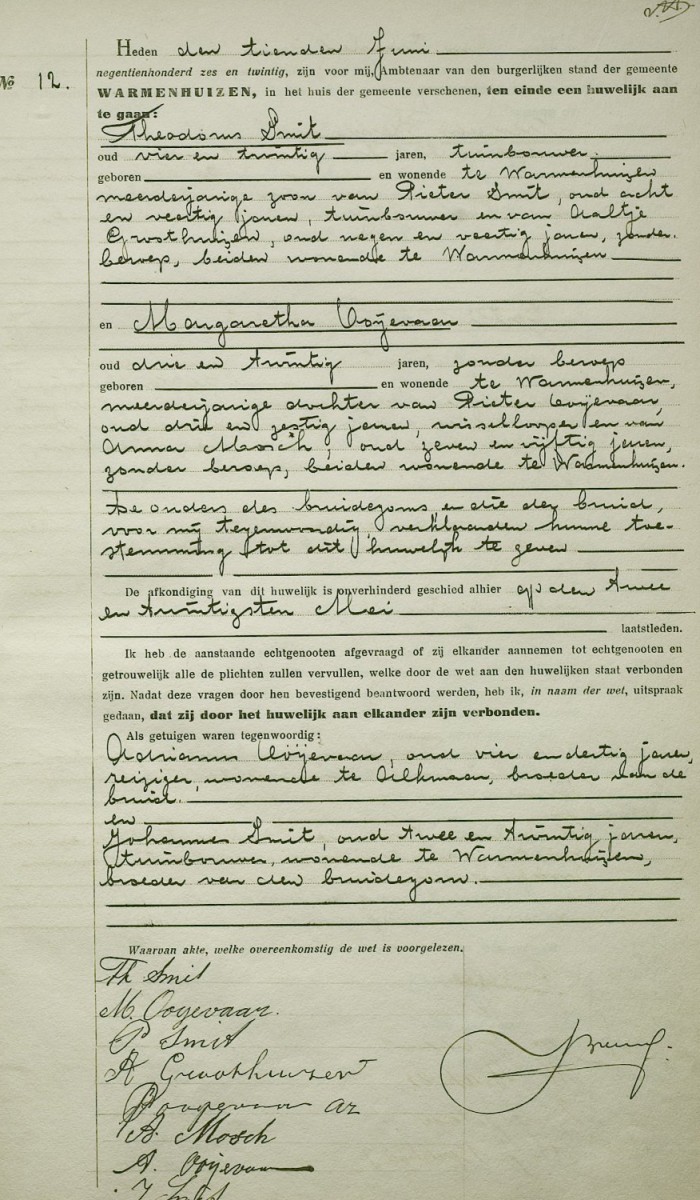 Heden den tienden Juni
Nº 12.
negentienhonderd zes en twintig, zijn voor mij, Ambtenaar van den burgerlijken stand der gemeente
WARMENHUIZEN, in het huis der gemeente verschenen, ten einde een huwelijk aan
te gaan:
Theodorus Smit
oud vier en twintig jaren, tuinbouwer
geboren en wonende te Warmenhuizen
meerderjarige zoon van Pieter Smit, oud acht
en veertig jaren, tuinbouwer en van Aaltje
Groothuizen, oud negen en veertig jaren, zonder
beroep, beiden wonende te Warmenhuizen
en Margaretha Ooijevaar
oud drie en twintig jaren, zonder beroep
geboren en wonende te Warmenhuizen,
meerderjarige dochter van Pieter Ooijevaar,
oud drie en zestig jaren, wisselloper en van
Anna Mosch, oud zeven en vijftig jaren,
zonder beroep, beiden wonende te Warmenhuizen.
De ouders des bruidegoms en die der bruid,
voor mij tegenwoordig verklaarden hunne toe-
stemming tot dit huwelijk te geven
De afkondiging van dit huwelijk is onverhinderd geschied alhier op den twee
en twintigsten Mei
laatstleden.
Ik heb de aanstaande echtgenooten afgevraagd of zij elkander aannemen tot echtgenooten en
getrouwelijk alle de plichten zullen vervullen, welke door de wet aan den huwelijken staat verbonden
zijn. Nadat deze vragen door hen bevestigend beantwoord werden, heb ik, in naam der wet, uitspraak
gedaan, dat zij door het huwelijk aan elkander zijn verbonden.
Als getuigen waren tegenwoordig:
Adrianus Ooijevaar, oud vier en dertig jaren,
reiziger, wonende te Alkmaar, broeder van de
bruid.
en
Johannes Smit, oud twee en twintig jaren,
tuinbouwer, wonende te Warmenhuizen,
broeder van den bruidegom.
Waarvan akte, welke overeenkomstig de wet is voorgelezen.
Th Smit
M. Ooyevaar.
P Smit
A Groothuizen
P Ooyevaar Az
A. Mosch
A. Ooijevaar
J Smit